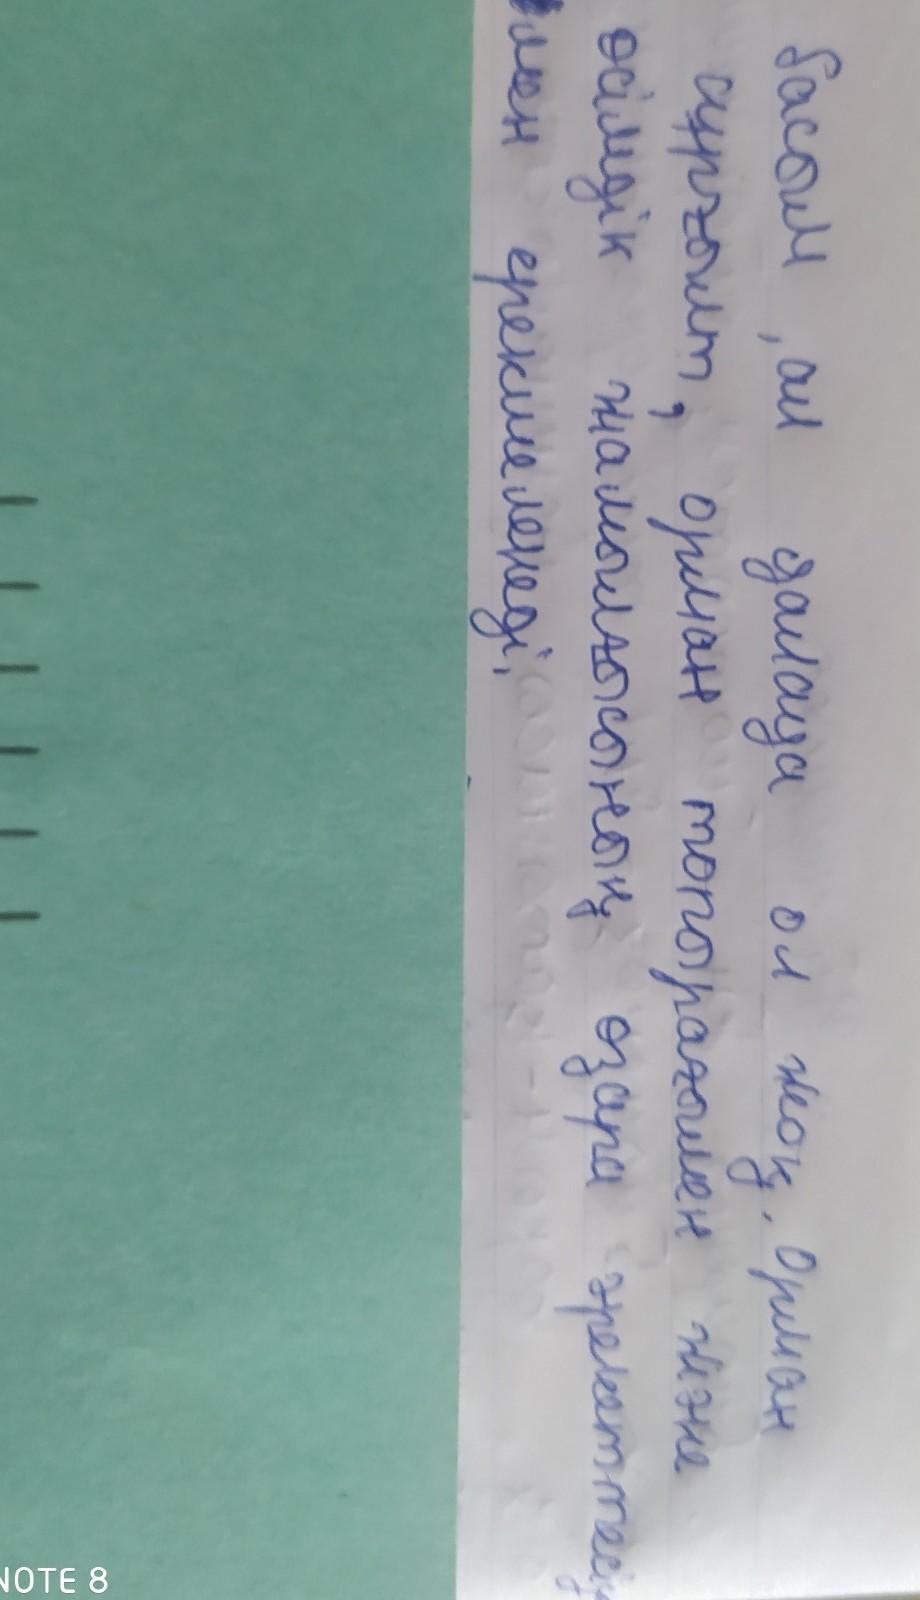 басым, ал далада ол жоқ. Орман
ақғылт, орман топырағымен және
өсімдік жамылғысының өзара әрекеттесу
мен ерекшеленеді,
NOTE 8